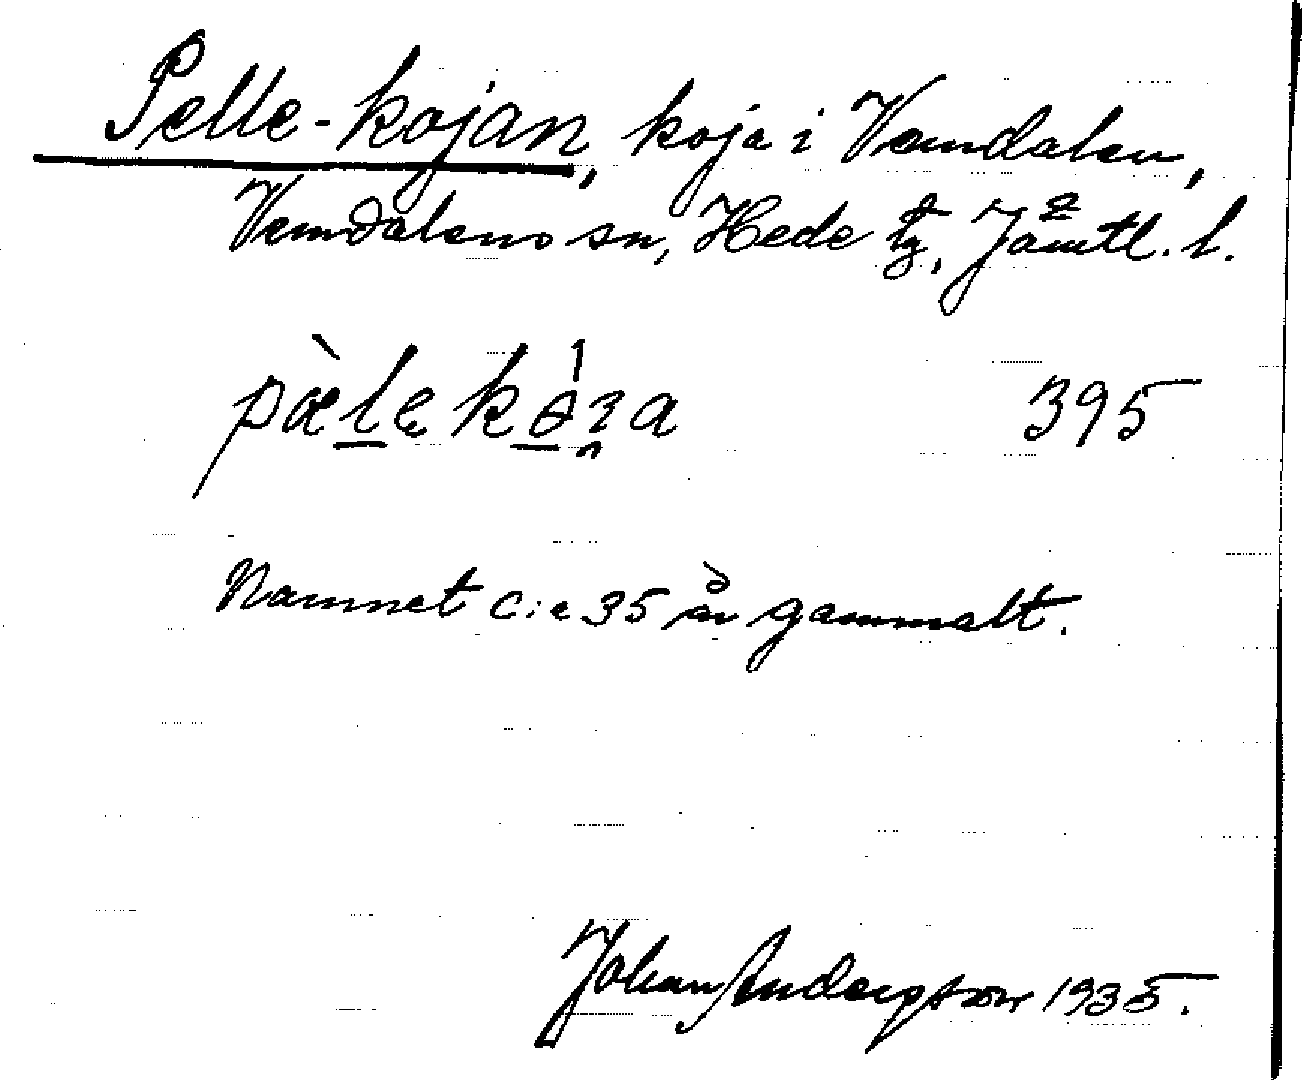 Pelle-kojan, koja i Vemdalen,
Vemdalens sn, Hede tg, Jämtl. l.
pæ̀lękòʒa 395
Namnet c:a 35 år gammalt.
Johan Andersson 1935.